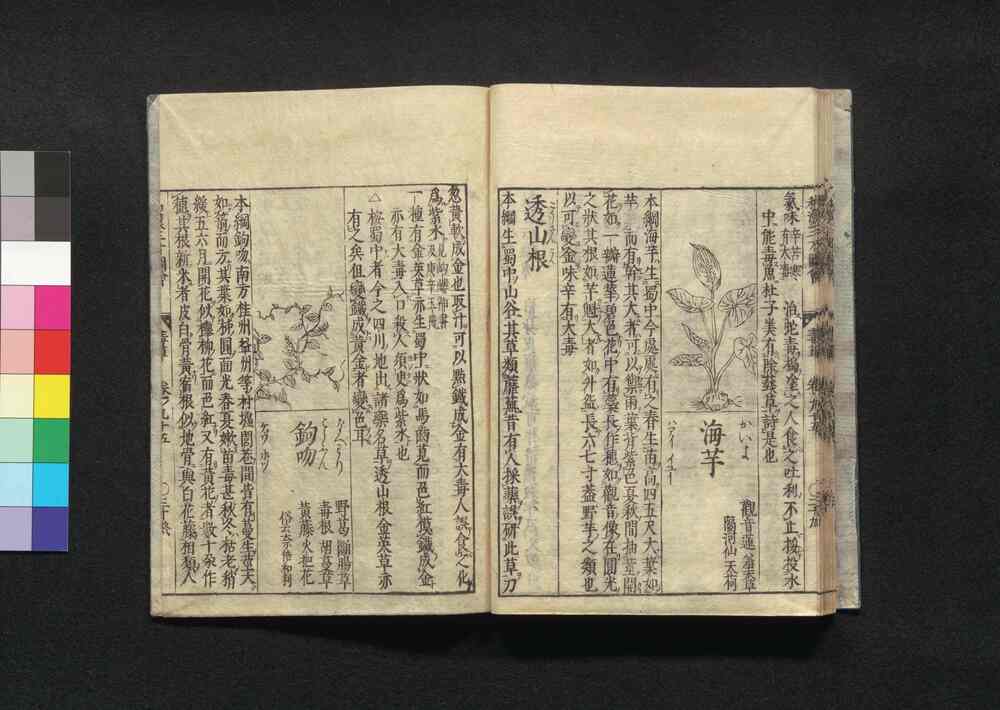 氣味辛苦寒有大毒 治蛇毒搗塗之人食之吐利不止按投水
中能毒魚杜子美有除蕁草詩是也
海芋
かいよ
ハアイ イユー
觀音蓮 羞天草
隔河仙 天荷
本綱海芋生蜀中今處處有之春生苗高四五尺大葉如
芋葉而有幹其大者可以禦雨葉背紫色夏秋間抽莖開
花如一瓣蓮華碧色花中有蕊長作穗如觀音像在圓光
之狀其根如芋魁大者如升盌長六七寸蓋野芋之類也
透山根
本綱生蜀中山谷其草類蘼蕪昔有人採藥誤研此草刀
忽黄軟成金也取汁可以點鐵成金有大毒人誤食之化
爲紫水
一種有金英草亦生蜀中狀如馬齒莧而色紅摸鐵成金
亦有大毒入口殺人須臾爲紫水也
△按蜀中者今之四川地出諸藥名草透山根金英草亦
有之矣但變鐵成黄金者變色耳
鉤吻
野葛 斷腸草
毒根 胡蔓草
黄藤 火把花
本綱鉤吻南方桂州邕州等村墟閭巷間皆有蔓生葉大
如箭而六其葉如柹圓而光春夏嫩苗毒甚秋冬枯老稍
緩五六月開花似櫸柳花而色紅又有黄花者數十朶作
穗其根新采者皮白骨黄宿根似地骨與白花藤相類人